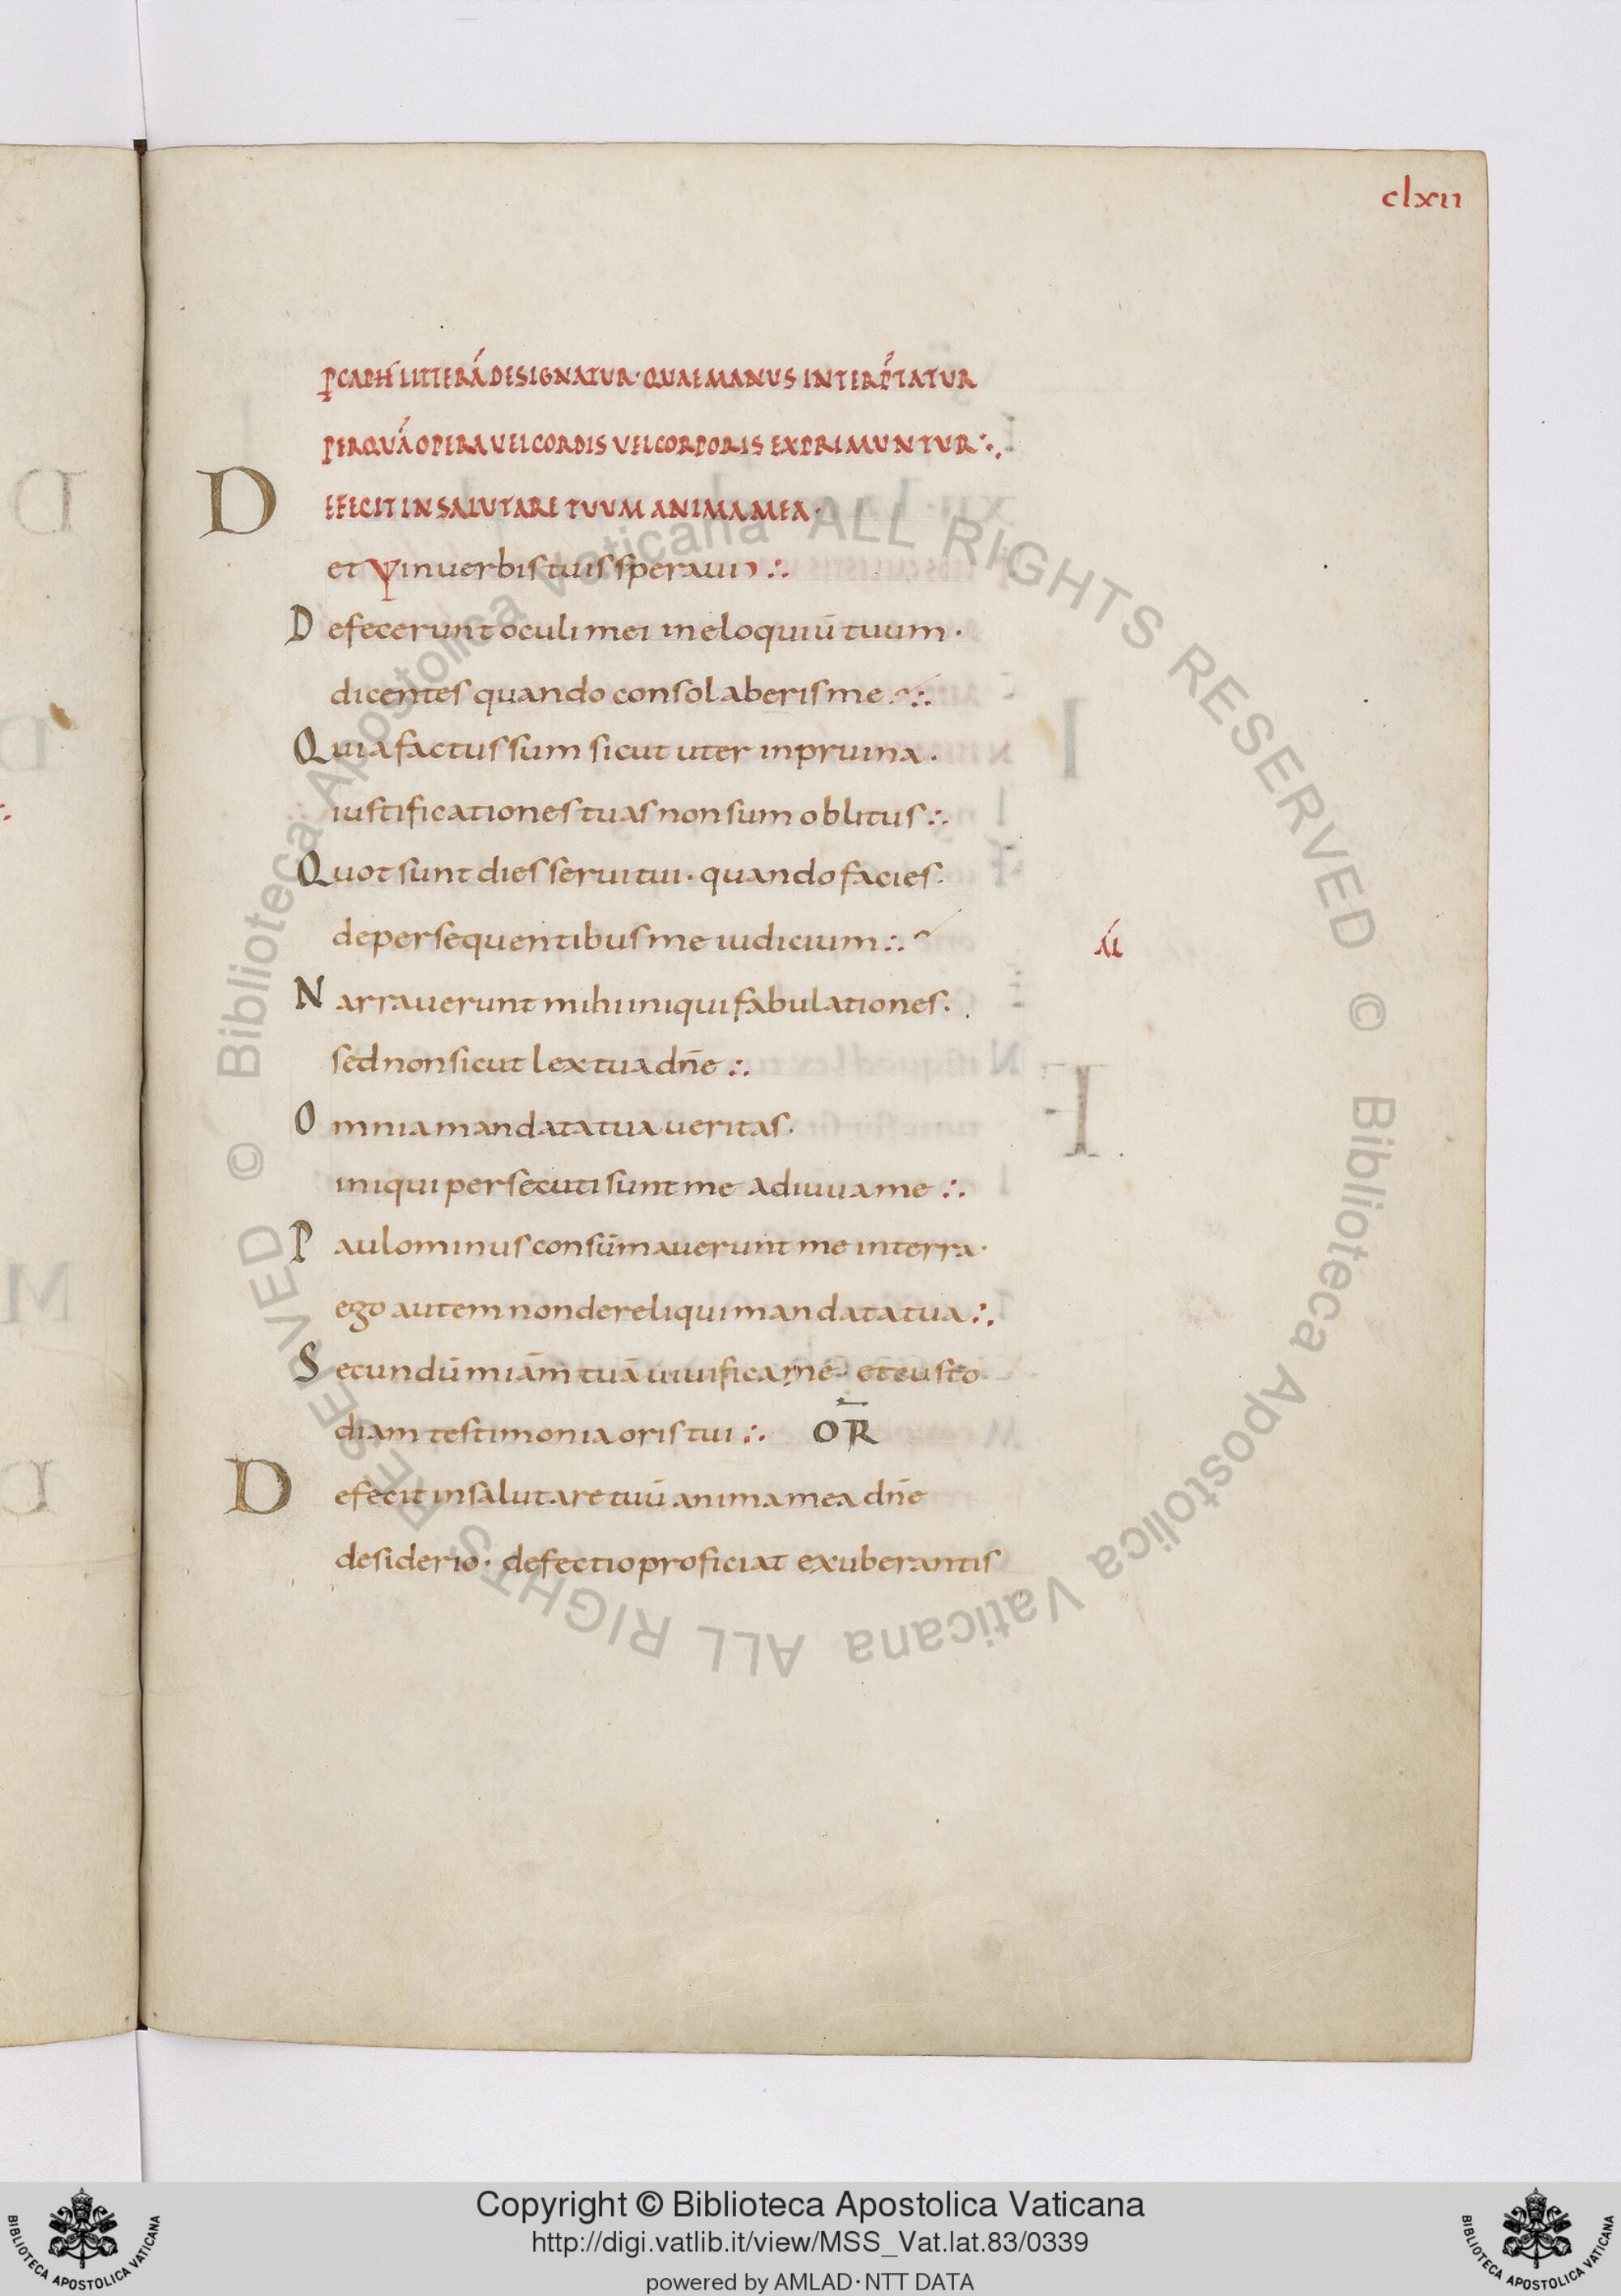 clxii
ꝑ CAPH LITTERÁ DESIGNATUR · QUAE MANUS INTERP̄TATUR
PER QUÁ OPERA VEL CORDIS VEL CORPORIS EXPRIMUNTUR ∴
DEFECIT IN SALUTARE TUUM ANIMA MEA ·
et in verbis tuis speravi ∴
Defecerunt oculi mei in eloquiū tuum ·
dicentes quando consolaberis me ∴
Quia factus sum sicut uter in pruina ·
iustificationes tuas non sum oblitus ∴
Quot sunt dies servi tui · quando facies ·
de persequentibus me iudicium ∴
Narraverunt mihi iniqui fabulationes ·
sed non sicut lex tua dn̄e ∴
Omnia mandata tua veritas ·
iniqui persecuti sunt me adiuva me ∴
Paulo minus consūmaverunt me in terra ·
ego autem non dereliqui mandata tua ∴
Secundū miām tuā vivifica me · et custo
diam testimonia oris tui ∴ OR̄
Defecit in salutare tuū anima mea dn̄e
desiderio · defectio proficiat exuberantis
© Biblioteca Apostolica Vaticana ALL RIGHTS RESERVED © Biblioteca Apostolica Vaticana ALL RIGHTS RESERVED
Copyright © Biblioteca Apostolica Vaticana
http://digi.vatlib.it/view/MSS_Vat.lat.83/0339
powered by AMLAD·NTT DATA
BIBLIOTECA APOSTOLICA VATICANA
BIBLIOTECA APOSTOLICA VATICANA